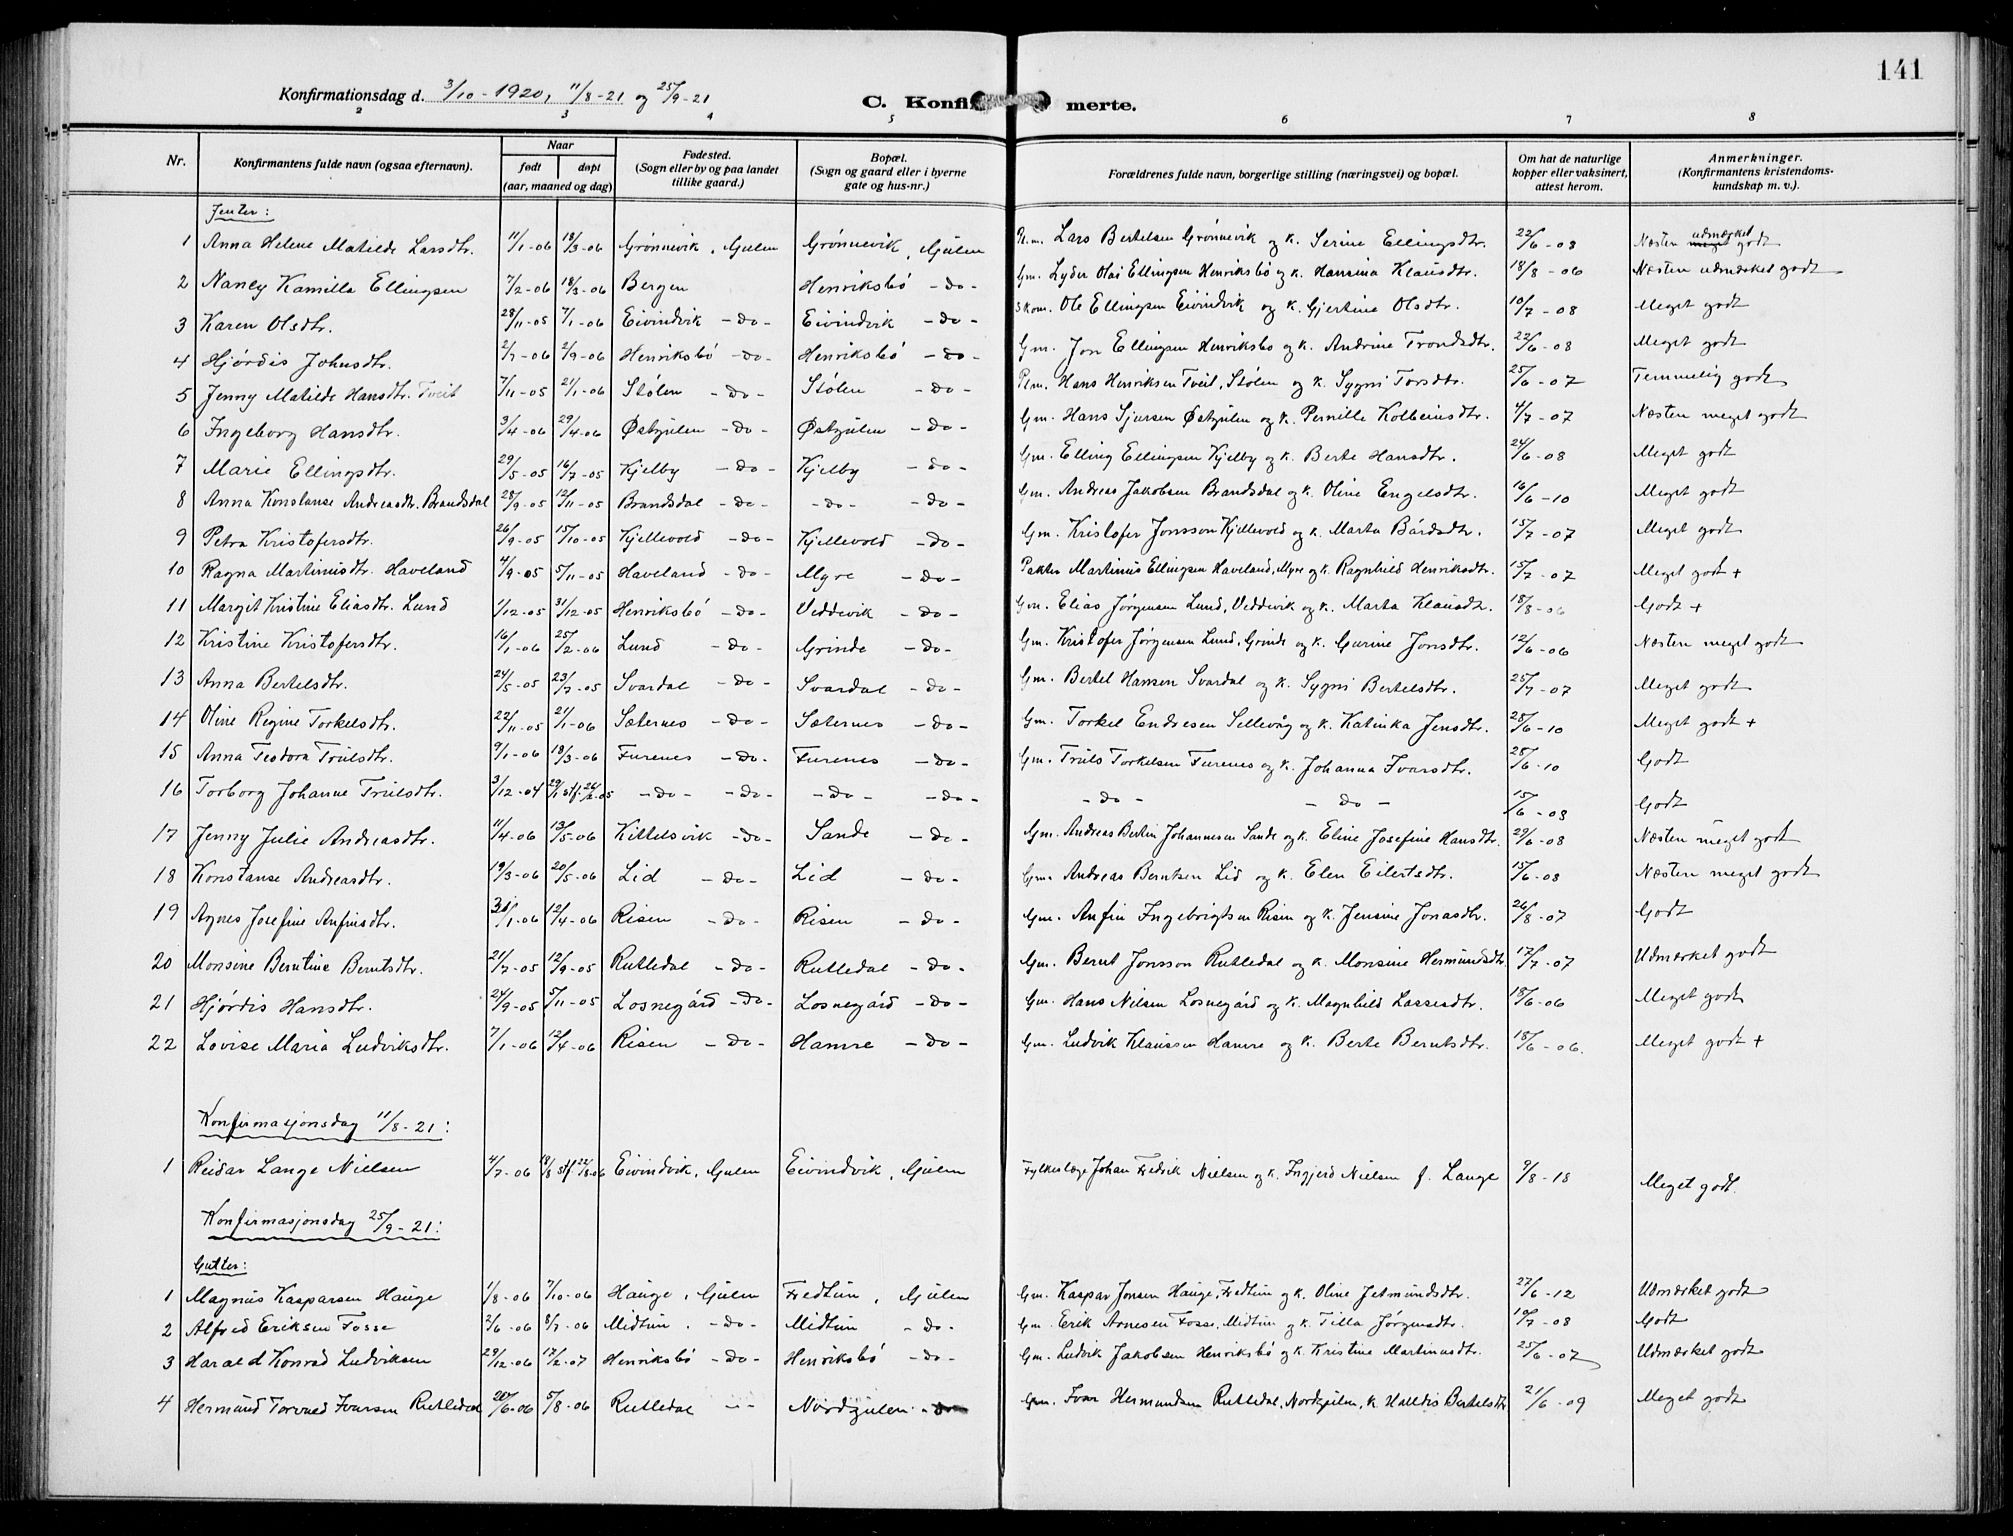 141
Konfirmationsdag d. 3/10-1920, 11/8-21 og 25/9-21
C. Konfirmerte.
2 3 4 5 6 7 8
Nr. Konfirmantens fulde navn (ogsaa efternavn). Naar født døpt (aar, maaned og dag) Fødested. (Sogn eller by og paa landet tillike gaard.) Bopæl. (Sogn og gaard eller i byerne gate og hus-nr.) Forældrenes fulde navn, borgerlige stilling (næringsvei) og bopæl. Om hat de naturlige kopper eller vaksinert, attest herom. Anmerkninger. (Konfirmantens kristendomskundskap m. v.).
Jenter:
1 Anna Helene Matilde Larsdtr. 11/1-06 18/3-06 Grönnevik, Gulen Grönnevik, Gulen Lars Bertelsen Grönnevik og k. Serine Ellingsdtr. 22/6-08 Næsten meget udmerket godt
2 Nancy Kamilla Ellingsen 7/2-06 18/3-06 Bergen Henriksbö -do- Gm. Lyder Olai Ellingsen Henriksbö og k. Hansina Klausdtr. 18/8-06 Næsten udmerket godt
3 Karen Olsdtr. 28/11-05 7/1-06 Eivindvik -do- Eivindvik -do- Skom. Ole Ellingsen Eivindvik og k. Gjertine Olsdtr. 10/7-08 Meget godt
4 Hjördis Johnsdtr. 2/7-06 2/9-06 Henriksbö -do- Henriksbö -do- Gm. Jon Ellingsen Henriksbo og k. Andrine Trondsdtr. 22/6-08 Meget godt
5 Jenny Matilde Hansdtr. Tveit 7/11-05 21/1-06 Stölen -do- Stölen -do- Plm. Hans Henriksen Tveit, Stölen og k. Sygni Torsdtr. 25/6-07 Temmelig godt
6 Ingeborg Hansdtr. 3/4-06 29/4-06 Østgulen -do- Østgulen -do- Gm. Hans Sjursen Østgulen og k. Pernille Kolbeinsdtr. 4/7-07 Næsten meget godt
7 Marie Ellingsdtr. 29/5-05 16/7-05 Kjelby -do- Kjelby -do- Gm. Elling Ellingsen Kjelby og k. Berte Hansdtr. 24/6-08 Meget godt
8 Anna Konstanse Andreasdtr. Brandsdal 28/9-05 12/11-05 Brandsdal -do- -do- -do- Gm. Andreas Jakobsen Brandsdal og k. Oline Engelsdtr. 16/6-10 Meget godt
9 Petra Kristofersdtr. 26/9-05 15/10-05 Kjellevold -do- Kjellevold -do- Gm. Kristofer Jonsson Kjellevold og k. Marta Bårdsdtr. 15/7-07 Meget godt
10 Ragna Martinusdtr. Haveland 4/9-05 5/11-05 Haveland -do- Myre -do- Pakter Martinus Ellingsen Haveland, Myre og k. Ragnhild Henriksdtr. 15/7-07 Meget godt +
11 Margit Kristine Eliasdtr. Lund 1/12-05 31/12-05 Henriksbö -do- Veddevik -do- Gm. Elias Jørgensen Lund, Veddevik og k. Marta Klausdtr. 18/8-06 Godt +
12 Kristine Kristofersdtr. 16/1-06 25/2-06 Lund -do- Grinde -do- Gm. Kristofer Jørgensen Lund, Grinde og k. Gurine Jonsdtr. 12/6-06 Næsten meget godt
13 Anna Bertelsdtr. 24/5-05 23/7-05 Svardal -do- Svardal -do- Gm. Bertel Hansen Svardal og k. Sygni Bertelsdtr. 25/7-07 Meget godt
14 Oline Regine Torkelsdtr. 22/11-05 21/1-06 Sæternes -do- Sæternes -do- Gm. Torkel Endresen Sellevåg og k. Katinka Jensdtr. 28/6-10 Meget godt +
15 Anna Teodora Trulsdtr. 9/1-06 18/3-06 Furenes -do- Furenes -do- Gm. Truls Torkelsen Furenes og k. Johanna Ivarsdtr. 28/6-10 Godt
16 Torborg Johanne Trulsdtr. 3/12-04 29/1 stf. 26/2-05 -do- -do- -do- -do- -do- -do- 15/6-08 Godt
17 Jenny Julie Andreasdtr. 11/4-06 13/5-06 Kittelsvik -do- Sande -do- Gm. Andreas Bertin Johannesen Sande og k. Eline Josefine Hansdtr. 29/6-08 Næsten meget godt
18 Konstanse Andreasdtr. 19/3-06 20/5-06 Lid -do- Lid -do- Gm. Andreas Berntsen Lid og k. Elen Eilertsdtr. 15/6-08 Næsten meget godt
19 Agnes Josefine Anfinsdtr. 31/1-06 12/4-06 Risen -do- Risen -do- Gm. Anfin Ingebrigtsen Risen og k. Jensine Jonasdtr. 26/8-07 Godt
20 Monsine Berntine Berntsdtr. 21/7-05 12/9-05 Rutledal -do- Rutledal -do- Gm. Bernt Jonsson Rutledal og k. Monsine Hermundsdtr 17/7-07 Udmerket godt
21 Hjördis Hansdtr. 24/9-05 5/11-05 Losnegård -do- Losnegård -do- Gm. Hans Nilsen Losnegård og k. Magnhild Lassesdtr. 18/6-06 Meget godt
22 Lovise Maria Ludviksdtr. 7/1-06 12/4-06 Risen -do- Hamre -do- Gm. Ludvik Klaussen Hamre og k. Berte Berntsdtr. 18/6-06. Meget godt +
Konfirmasjonsdag 11/8-21:
1 Reidar Lange Nielsen 4/7-06 19/8 stf 22/8-06 Eivindvik, Gulen Eivindvik, Gulen Fylkeslæge Johan Fredrik Nielsen og k. Ingjerd Nielsen f. Lange 9/8-18 Meget godt.
Konfirmasjonsdag 25/9-21:
Gutter:
1 Magnus Kasparsen Hauge 1/8-06 7/10-06 Hauge, Gulen Fredtun, Gulen Gm. Kaspar Jonsen Hauge, Fredtun og k. Oline Jetmundsdtr. 27/6-12 Udmerket godt
2 Alfred Eriksen Fosse 2/6-06 8/7-06 Midtun, -do- Midtun -do- Gm. Erik Arnesen Fosse, Midtun og k. Tilla Jørgensdtr. 10/7-08 Godt
3 Harald Konrad Ludviksen 29/12-06 17/2-07 Henriksbö -do- Henriksbö -do- Gm. Ludvik Jakobsen Henriksbö og k. Kristine Martinusdtr. 25/6-07 Udmerket godt
4 Hermund Torvald Ivarsen Rutledal 20/6-06 5/8-06 Rutledal -"- Nordgulen -do- Gm. Ivar Hermundsen Rutledal, Nordgulen, k. Halldis Bertelsdtr 21/6-09 Meget godt